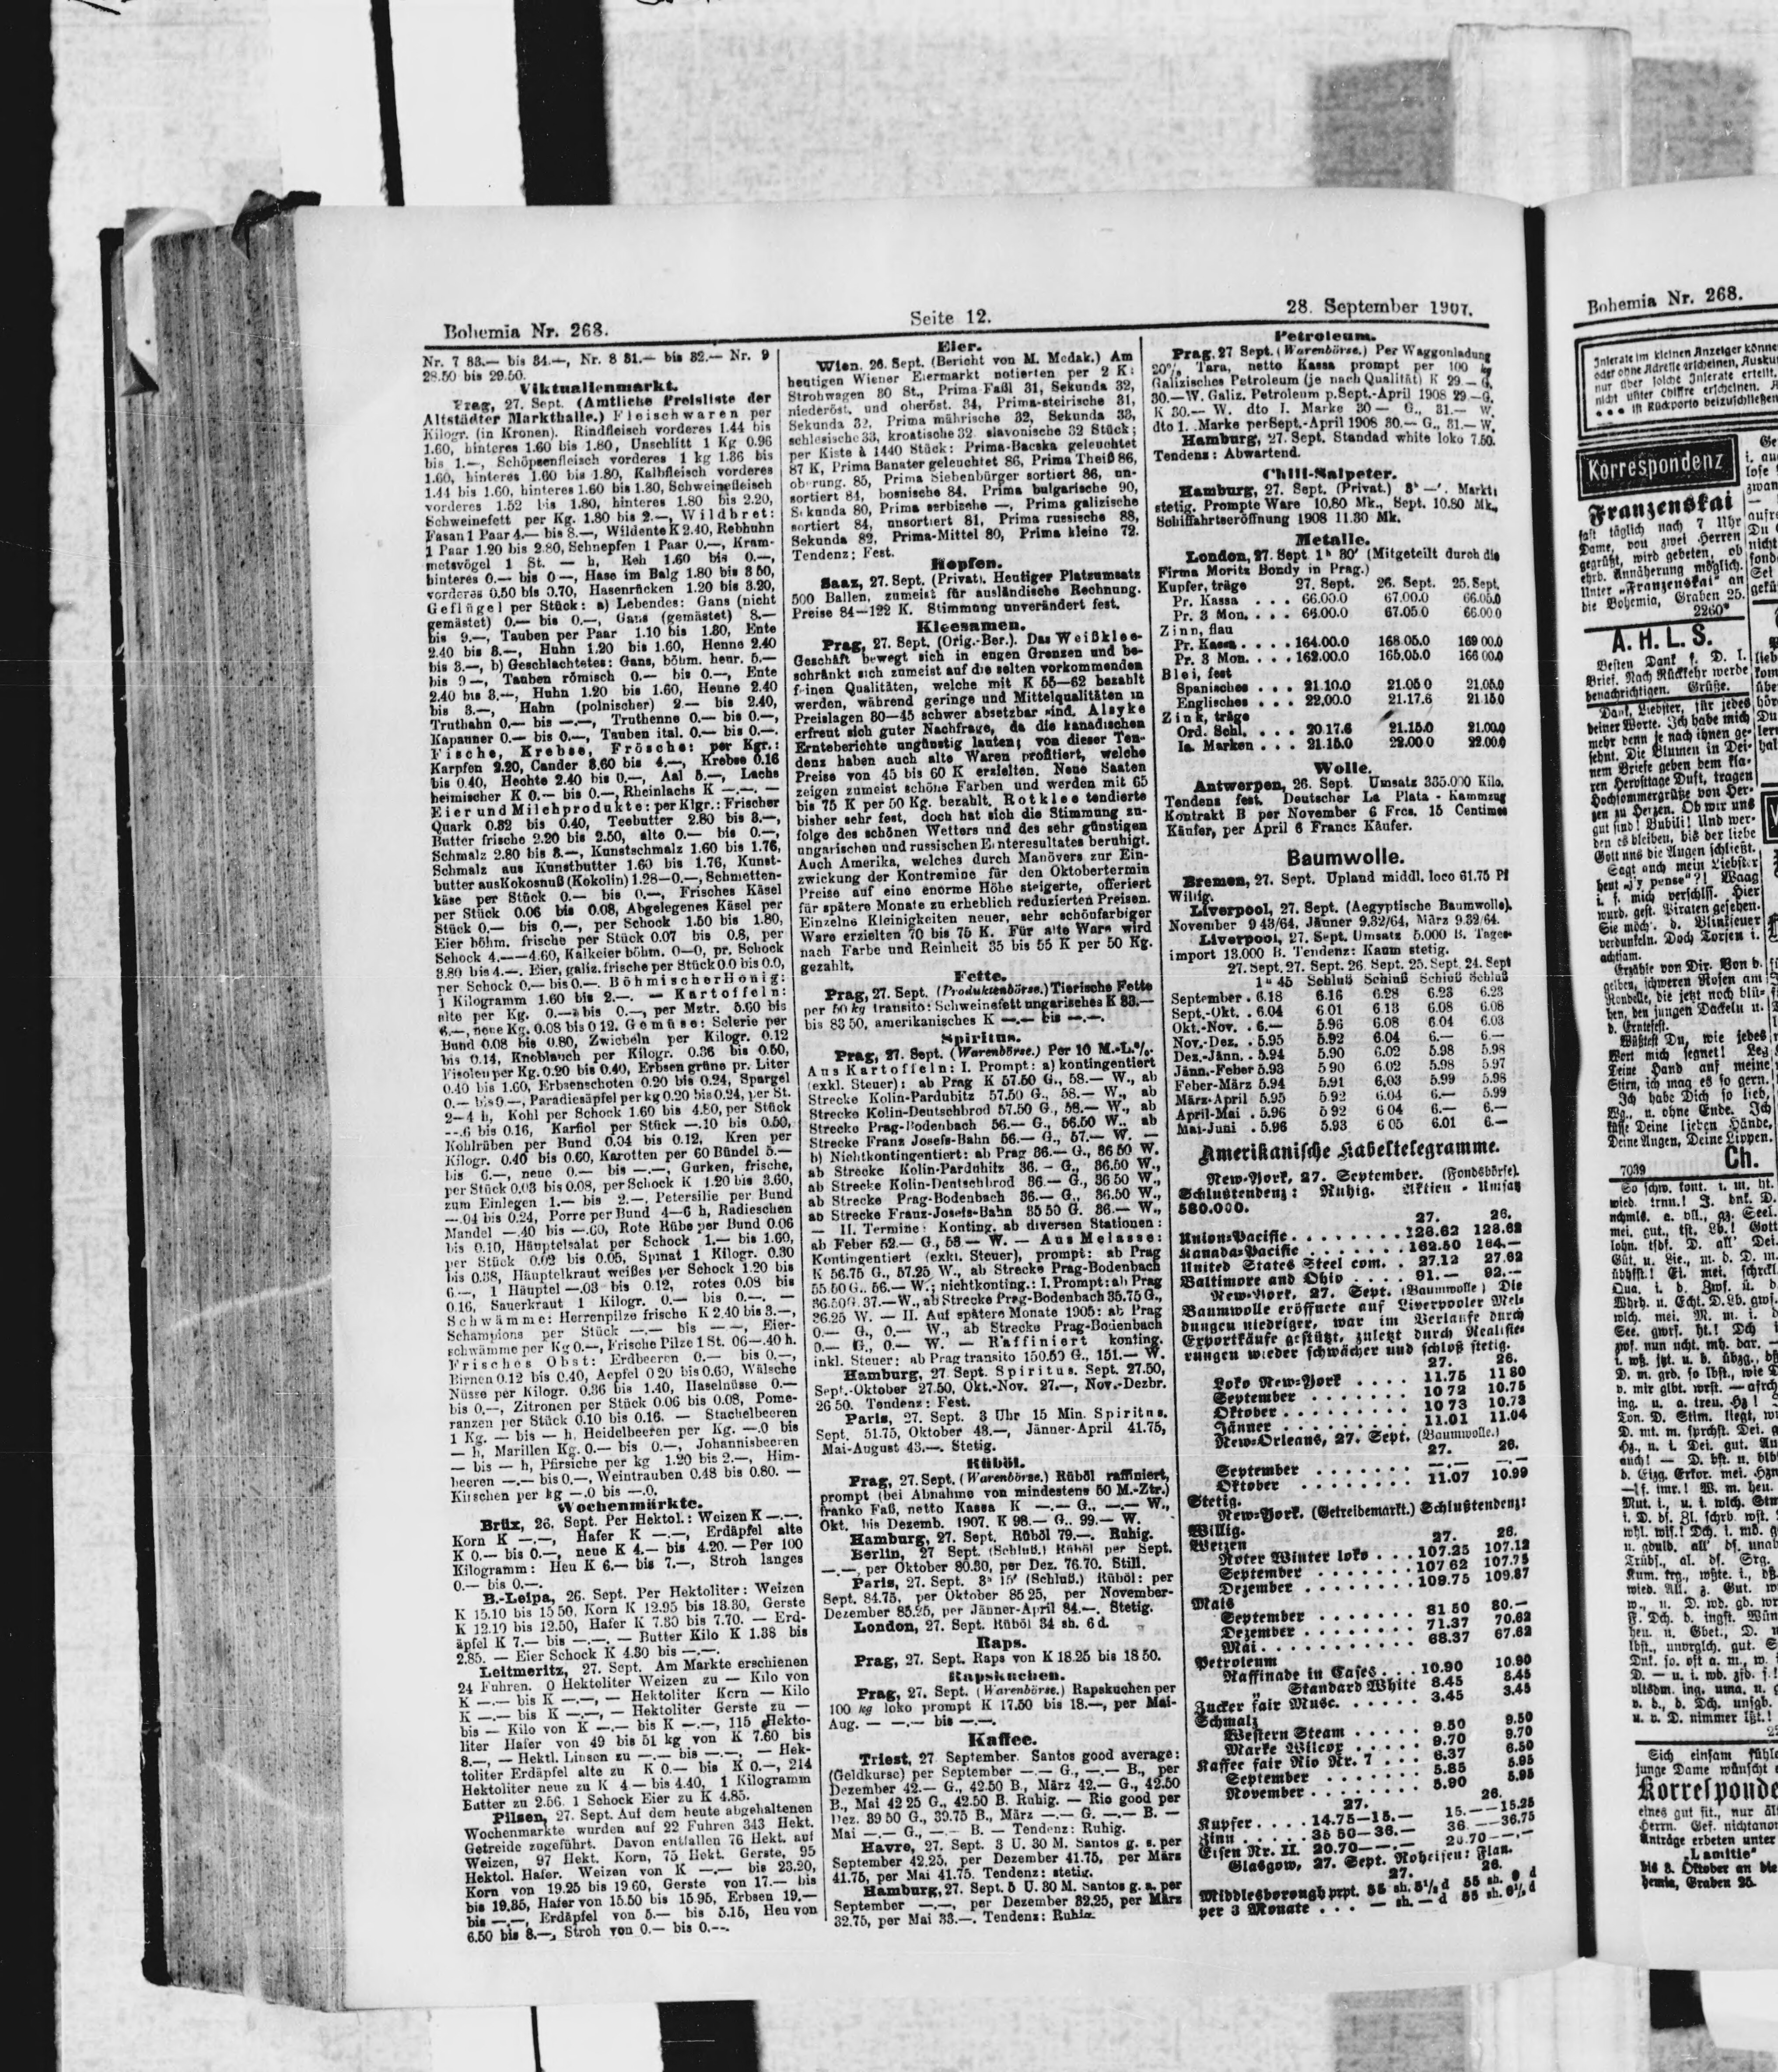 Bohemia Nr. 268.
Seite 12.
28. September 1907.
Nr. 7 33.— bis 34.—, Nr. 8 31.— bis 32.— Nr. 9
28.50 bis 29.50.
Viktualienmarkt.
Prag, 27. Sept. (Amtliche Preisliste der
Altstädter Markthalle.) Fleischwaren per
Kilogr. (in Kronen). Rindfleisch vorderes 1.44 bis
1.60, hinteres 1.60 bis 1.80, Unschlitt 1 Kg 0.96
bis 1.—, Schöpsenfleisch vorderes 1 kg 1.36 bis
1.60, hinteres 1.60 bis 1.80, Kalbfleisch vorderes
1.44 bis 1.60, hinteres 1.60 bis 1.80, Schweinefleisch
vorderes 1.52 bis 1.80, hinteres 1.80 bis 2.20,
Schweinefett per Kg. 1.80 bis 2.—, Wildbret:
Fasan 1 Paar 4.— bis 8.—, Wildente K 2.40, Rebhuhn
1 Paar 1.20 bis 2.80, Schnepfen 1 Paar 0.—, Kram-
metsvögel 1 St. — h, Reh 1.60 bis 0.—,
hinteres 0.— bis 0—, Hase im Balg 1.80 bis 3 50,
vorderes 0.50 bis 0.70, Hasenrücken 1.20 bis 3.20,
Geflügel per Stück: a) Lebendes: Gans (nicht
gemästet) 0.— bis 0.—, Gans (gemästet) 8.—
bis 9.—, Tauben per Paar 1.10 bis 1.30, Ente
2.40 bis 3.—, Huhn 1.20 bis 1.60, Henne 2.40
bis 3.—, b) Geschlachtetes: Gans, böhm. heur. 5.—
bis 9—, Tauben römisch 0.— bis 0.—, Ente
2.40 bis 3.—, Huhn 1.20 bis 1.60, Henne 2.40
bis 3.—, Hahn (polnischer) 2.— bis 2.40,
Truthahn 0.— bis —.—, Truthenne 0.— bis 0.—,
Kapauner 0.— bis 0.—, Tauben ital. 0.— bis 0.—.
Fische, Krebse, Frösche: per Kgr.:
Karpfen 2.20, Cander 3.60 bis 4.—, Krebse 0.16
bis 0.40, Hechte 2.40 bis 0.—, Aal 5.—, Lachs
heimischer K 0.— bis 0.—, Rheinlachs K —.—. —
Eier und Milchprodukte: per Klgr.: Frischer
Quark 0.32 bis 0.40, Teebutter 2.80 bis 3.—,
Butter frische 2.20 bis 2.50, alte 0.— bis 0.—,
Schmalz 2.80 bis 3.—, Kunstschmalz 1.60 bis 1.76,
Schmalz aus Kunstbutter 1.60 bis 1.76, Kunst-
butter aus Kokosnuß (Kokolin) 1.28—0.—, Schmetten-
käse per Stück 0.— bis 0.—, Frisches Käsel
per Stück 0.06 bis 0.08, Abgelegenes Käsel per
Stück 0.— bis 0.—, per Schock 1.50 bis 1.80,
Eier böhm. frische per Stück 0.07 bis 0.8, per
Schock 4.——4.60, Kalkeier böhm. 0—0, pr. Schock
3.80 bis 4.—. Eier, galiz. frische per Stück 0.0 bis 0.0,
per Schock 0.— bis 0.—. Böhmischer Honig:
1 Kilogramm 1.60 bis 2.—. — Kartoffeln:
alte per Kg. 0.— bis 0.—, per Mztr. 5.60 bis
6.—, neue Kg. 0.08 bis 0 12. Gemüse: Selerie per
Bund 0.08 bis 0.80, Zwiebeln per Kilogr. 0.12
bis 0.14, Knoblauch per Kilogr. 0.36 bis 0.50,
Fisolen per Kg. 0.20 bis 0.40, Erbsen grüne pr. Liter
0.40 bis 1.60, Erbsenschoten 0.20 bis 0.24, Spargel
0.— bis 0—, Paradiesäpfel per kg 0.20 bis 0.24, per St.
2—4 h, Kohl per Schock 1.60 bis 4.80, per Stück
—.6 bis 0.16, Karfiol per Stück —.10 bis 0.50,
Kohlrüben per Bund 0.04 bis 0.12, Kren per
Kilogr. 0.40 bis 0.60, Karotten per 60 Bündel 5.—
bis 6.—, neue 0.— bis —.—, Gurken, frische,
per Stück 0.03 bis 0.08, per Schock K 1.20 bis 3.60,
zum Einlegen 1.— bis 2.—, Petersilie per Bund
—.04 bis 0.24, Porre per Bund 4—6 h, Radieschen
Mandel —.40 bis —.60, Rote Rübe per Bund 0.06
bis 0.10, Häuptelsalat per Schock 1.— bis 1.60,
per Stück 0.02 bis 0.05, Spinat 1 Kilogr. 0.30
bis 0.38, Häuptelkraut weißes per Schock 1.20 bis
6.—, 1 Häuptel —.03 bis 0.12, rotes 0.08 bis
0.16, Sauerkraut 1 Kilogr. 0.— bis 0.—. —
Schwämme: Herrenpilze frische K 2.40 bis 3.—,
Schampions per Stück —.— bis ——, Eier-
schwämme per Kg 0.—, Frische Pilze 1 St. 06—.40 h.
Frisches Obst: Erdbeeren 0.— bis 0.—,
Birnen 0.12 bis 0.40, Aepfel 0 20 bis 0.60, Wälsche
Nüsse per Kilogr. 0.36 bis 1.40, Haselnüsse 0.—
bis 0.—, Zitronen per Stück 0.06 bis 0.08, Pome-
ranzen per Stück 0.10 bis 0.16. — Stachelbeeren
1 Kg. — bis — h, Heidelbeeren per Kg. —.0 bis
— h, Marillen Kg. 0.— bis 0.—, Johannisbeeren
— bis — h, Pfirsiche per kg 1.20 bis 2.—, Him-
beeren —.— bis 0.—, Weintrauben 0.48 bis 0.80. —
Kirschen per kg —.0 bis —.0.
Wochenmärkte.
Brüx, 26. Sept. Per Hektol.: Weizen K —.—.
Korn K —.—, Hafer K —.—, Erdäpfel alte
K 0.— bis 0.—, neue K 4.— bis 4.20. — Per 100
Kilogramm: Heu K 6.— bis 7.—, Stroh langes
0.— bis 0.—.
B.-Leipa, 26. Sept. Per Hektoliter: Weizen
K 15.10 bis 15 50, Korn K 12.95 bis 13.30, Gerste
K 12.10 bis 12.50, Hafer K 7.30 bis 7.70. — Erd-
äpfel K 7.— bis —.—. — Butter Kilo K 1.38 bis
2.85. — Eier Schock K 4.30 bis —.—.
Leitmeritz, 27. Sept. Am Markte erschienen
24 Fuhren. 0 Hektoliter Weizen zu — Kilo von
K —.— bis K —.—, — Hektoliter Korn — Kilo
K —.— bis K —.—, — Hektoliter Gerste zu —
bis — Kilo von K —.— bis K —.—, 115 Hekto-
liter Hafer von 49 bis 51 kg von K 7.60 bis
8.—, — Hektl. Linsen zu —.— bis —.—, — Hek-
toliter Erdäpfel alte zu K 0.— bis K 0.—, 214
Hektoliter neue zu K 4 — bis 4.40, 1 Kilogramm
Butter zu 2.56. 1 Schock Eier zu K 4.85.
Pilsen, 27. Sept. Auf dem heute abgehaltenen
Wochenmarkte wurden auf 22 Fuhren 343 Hekt.
Getreide zugeführt. Davon entfallen 76 Hekt. auf
Weizen, 97 Hekt. Korn, 75 Hekt. Gerste, 95
Hektol. Hafer. Weizen von K —.— bis 23.20,
Korn von 19.25 bis 19 60, Gerste von 17.— bis
bis 19.35, Hafer von 15.50 bis 15.95, Erbsen 19.—
bis —.—, Erdäpfel von 5.— bis 5.15, Heu von
6.50 bis 8.—, Stroh von 0.— bis 0.—.
Eier.
Wien, 26. Sept. (Bericht von M. Modak.) Am
heutigen Wiener Eiermarkt notierten per 2 K:
Strohwagen 30 St., Prima Faßl 31, Sekunda 32,
niederöst. und oberöst. 34, Prima-steirische 31,
Sekunda 32, Prima mährische 32, Sekunda 33,
schlesische 33, kroatische 32 slavonische 32 Stück;
per Kiste à 1440 Stück: Prima-Bacska geleuchtet
87 K, Prima Banater geleuchtet 86, Prima Theiß 86,
oberung. 85, Prima Siebenbürger sortiert 86, un-
sortiert 84, bosnische 84, Prima bulgarische 90,
Sekunda 80, Prima serbische —, Prima galizische
sortiert 84, unsortiert 81, Prima russische 88,
Sekunda 82, Prima-Mittel 80, Prima kleine 72.
Tendenz: Fest.
Hopfen.
Saaz, 27. Sept. (Privat). Heutiger Platzumsatz
500 Ballen, zumeist für ausländische Rechnung.
Preise 84—122 K. Stimmung unverändert fest.
Kleesamen.
Prag, 27. Sept. (Orig.-Ber.). Das Weißklee-
Geschäft bewegt sich in engen Grenzen und be-
schränkt sich zumeist auf die selten vorkommenden
feinen Qualitäten, welche mit K 55—62 bezahlt
werden, während geringe und Mittelqualitäten in
Preislagen 30—45 schwer absetzbar sind. Alsyke
erfreut sich guter Nachfrage, da die kanadischen
Ernteberichte ungünstig lauten; von dieser Ten-
denz haben auch alte Waren profitiert, welche
Preise von 45 bis 60 K erzielten. Neue Saaten
zeigen zumeist schöne Farben und werden mit 65
bis 75 K per 50 Kg. bezahlt. Rotklee tendierte
bisher sehr fest, doch hat sich die Stimmung zu-
folge des schönen Wetters und des sehr günstigen
ungarischen und russischen Ernteresultates beruhigt.
Auch Amerika, welches durch Manövers zur Ein-
zwickung der Kontremine für den Oktobertermin
Preise auf eine enorme Höhe steigerte, offeriert
für spätere Monate zu erheblich reduzierten Preisen.
Einzelne Kleinigkeiten neuer, sehr schönfarbiger
Ware erzielten 70 bis 75 K. Für alte Ware wird
nach Farbe und Reinheit 35 bis 55 K per 50 Kg.
gezahlt.
Fette.
Prag, 27. Sept. (Produktenbörse.) Tierische Fette
per 50 kg transito: Schweinefett ungarisches K 83.—
bis 83 50, amerikanisches K —.— bis —.—.
Spiritus.
Prag, 27. Sept. (Warenbörse.) Per 10 M.-L.%.
Aus Kartoffeln: I. Prompt: a) kontingentiert
(exkl. Steuer): ab Prag K 57.50 G., 58.— W., ab
Strecke Kolin-Pardubitz 57.50 G., 58.— W., ab
Strecke Kolin-Deutschbrod 57.50 G., 58.— W., ab
Strecke Prag-Bodenbach 56.— G., 56.50 W., ab
Strecke Franz Josefs-Bahn 56.— G., 57.— W. —
b) Nichtkontingentiert: ab Prag 36.— G., 36 50 W.
ab Strecke Kolin-Pardubitz 36. — G., 36.50 W.,
ab Strecke Kolin-Deutschbrod 36.— G., 36 50 W.,
ab Strecke Prag-Bodenbach 36.— G., 36.50 W.,
ab Strecke Franz-Josefs-Bahn 35 50 G. 36.— W.,
— II. Termine: Konting. ab diversen Stationen:
ab Feber 52.— G., 53.— W. — Aus Melasse:
Kontingentiert (exkl. Steuer), prompt: ab Prag
K 56.75 G., 57.25 W., ab Strecke Prag-Bodenbach
55.50 G., 56.— W.; nichtkonting.: I. Prompt: ab Prag
36.50 G. 37.— W., ab Strecke Prag-Bodenbach 35.75 G.,
36.25 W. — II. Auf spätere Monate 1905: ab Prag
0.— G., 0.— W., ab Strecke Prag-Bodenbach
0.— G., 0.— W. — Raffiniert konting.
inkl. Steuer: ab Prag transito 150.50 G., 151.— W.
Hamburg, 27. Sept. Spiritus. Sept. 27.50,
Sept.-Oktober 27.50, Okt.-Nov. 27.—, Nov.-Dezbr.
26 50. Tendenz: Fest.
Paris, 27. Sept. 3 Uhr 15 Min. Spiritus.
Sept. 51.75, Oktober 43.—, Jänner-April 41.75,
Mai-August 43.—. Stetig.
Rüböl.
Prag, 27. Sept. (Warenbörse.) Rüböl raffiniert,
prompt (bei Abnahme von mindestens 50 M.-Ztr.)
franko Faß, netto Kassa K —.— G., —.— W.,
Okt. bis Dezemb. 1907. K 98.— G., 99.— W.
Hamburg, 27. Sept. Rüböl 79.—. Ruhig.
Berlin, 27 Sept. (Schluß.) Rüböl per Sept.
—.—, per Oktober 80.30, per Dez. 76.70. Still.
Paris, 27. Sept. 3h 15′ (Schluß.) Rüböl: per
Sept. 84.75, per Oktober 85 25, per November-
Dezember 85.25, per Jänner-April 84.—. Stetig.
London, 27. Sept. Rüböl 34 sh. 6 d.
Raps.
Prag, 27. Sept. Raps von K 18.25 bis 18 50.
Rapskuchen.
Prag, 27. Sept. (Warenbörse.) Rapskuchen per
100 kg loko prompt K 17.50 bis 18.—, per Mai-
Aug. — —.— bis —.—.
Kaffee.
Triest, 27 September. Santos good average:
(Geldkurse) per September —.— G., —.— B., per
Dezember 42.— G., 42.50 B., März 42.— G., 42.50
B., Mai 42 25 G., 42.50 B. Ruhig. — Rio good per
Dez. 39 50 G., 39.75 B., März —.— G. —.— B. —
Mai —.— G., —.— B. — Tendenz: Ruhig.
Havre, 27. Sept. 3 U. 30 M. Santos g. s. per
September 42.25, per Dezember 41.75, per März
41.75, per Mai 41.75. Tendenz: stetig.
Hamburg, 27. Sept. 5 U. 30 M. Santos g. a. per
September —.—, per Dezember 32.25, per März
32.75, per Mai 33.—. Tendenz: Ruhig.
Petroleum.
Prag, 27 Sept. (Warenbörse.) Per Waggonladung
20% Tara, netto Kassa prompt per 100 kg
Galizisches Petroleum (je nach Qualität) K 29 — G.
30.— W. Galiz. Petroleum p. Sept.-April 1908 29 — G.
K 30.— W. dto I. Marke 30 — G., 31.— W.
dto I. Marke per Sept.-April 1908 30.— G., 31.— W.
Hamburg, 27. Sept. Standad white loko 7.50.
Tendens: Abwartend.
Chili-Salpeter.
Hamburg, 27. Sept. (Privat.) 3h —′. Markt:
stetig. Prompte Ware 10.80 Mk., Sept. 10.80 Mk.,
Schiffahrtseröffnung 1908 11.30 Mk.
Metalle.
London, 27. Sept. 1h 30′ (Mitgeteilt durch die
Firma Moritz Bondy in Prag.)
Kupfer, träge 27. Sept. 26. Sept. 25. Sept.
Pr. Kassa . . . 66.00.0 67.00.0 66.05.0
Pr. 3 Mon. . . . 66.00.0 67.05 0 66.00 0
Zinn, flau
Pr. Kassa . . . . 164.00.0 168.05.0 169 00.0
Pr. 3 Mon. . . . 162.00.0 165.05.0 166 00.0
Blei, fest
Spanisches . . . 21.10.0 21.05 0 21.05.0
Englisches . . . 22.00.0 21.17.6 21 15.0
Zink, träge
Ord. Schl. . . . 20.17.6 21.15.0 21.00.0
Ia. Marken . . . 21.15.0 22.00 0 22.00.0
Wolle.
Antwerpen, 26. Sept. Umsatz 335.000 Kilo.
Tendens fest. Deutscher La Plata-Kammzug
Kontrakt B per November 6 Frcs. 15 Centimes
Käufer, per April 6 Francs Käufer.
Baumwolle.
Bremen, 27. Sept. Upland middl. loco 61.75 Pf
Willig.
Liverpool, 27. Sept. (Aegyptische Baumwolle).
November 9 43/64, Jänner 9.32/64, März 9.32/64.
Liverpool, 27. Sept. Umsatz 5.000 B. Tages-
import 13.000 B. Tendenz: Kaum stetig.
27. Sept. 27. Sept. 26. Sept. 25. Sept. 24. Sept
1h 45 Schluß Schluß Schluß Schluß
September . 6.18 6.16 6.28 6.23 6.23
Sept.-Okt. . 6.04 6 01 6 13 6.08 6.08
Okt.-Nov. . 6.— 5.96 6.08 6 04 6.03
Nov.-Dez. . 5.95 5.92 6.04 6.— 6.—
Dez.-Jänn. . 5.94 5.90 6.02 5.98 5.98
Jänn.-Feber 5.93 5 90 6.02 5.98 5.97
Feber-März 5.94 5.91 6.03 5.99 5.98
März-April 5.95 5.92 6.04 6.— 5.99
April-Mai . 5.96 5 92 6 04 6.— 6.—
Mai-Juni . 5.96 5.93 6 05 6.01 6.—
Amerikanische Kabeltelegramme.
New-York, 27. September. (Fondsbörse).
Schlußtendenz: Ruhig. Aktien-Umsatz
580.000.
27. 26.
Union-Pacific . . . . . . . . 128.62 128.62
Kanada-Pacific . . . . . . . 162.50 164.—
United States Steel com. . 27.12 27.62
Baltimore and Ohio . . . . 91.— 92.—
New-York, 27. Sept. (Baumwolle) Die
Baumwolle eröffnete auf Liverpooler Mel-
dungen niedriger, war im Verlaufe durch
Exportkäufe gestützt, zuletzt durch Realisie-
rungen wieder schwächer und schloß stetig.
27. 26.
Loko New-York . . . . 11.75 11 80
September . . . . . . . 10 72 10.75
Oktober . . . . . . . . 10 73 10.73
Jänner . . . . . . . . 11.01 11.04
New-Orleans, 27. Sept. (Baumwolle.)
27. 26.
September . . . . . . . —.— —.—
Oktober . . . . . . . 11.07 10.99
Stetig.
New-York. (Getreibemarkt.) Schlußtendenz:
Willig.
Weizen 27. 26.
Roter Winter loko . . . 107.25 107.12
September . . . . . . . 107 62 107.75
Dezember . . . . . . . 109.75 109.87
Mais
September . . . . . . . 81 50 80.—
Dezember . . . . . . . 71.37 70.62
Mai . . . . . . . . . . . 68.37 67.62
Petroleum
Raffinade in Cases . . . 10.90 10.90
„ Standard White 8.45 8.45
Zucker fair Musc. . . . . . 3.45 3.45
Schmalz
Western Steam . . . . . 9.50 9.50
Marke Wilcox . . . . . 9.70 9.70
Kaffee fair Rio Nr. 7 . . . 6.37 6.50
September . . . . . . . 5.85 5.95
November . . . . . . . 5.90 5.95
27. 26.
Kupfer . . . . 14.75—15.— 15.——15.25
Zinn . . . . . 35 50—36.— 36 ——36.75
Eisen Nr. II. 20.70—.— 20.70—.—
Glasgow, 27. Sept. Roheisen: Flau.
27. 26.
Middlesborough prpt. 55 sh. 5½ d 55 sh. 9 d
per 3 Monate . . . — sh. — d 55 sh. 6½ d
Bohemia Nr. 268.
Korrespondenz
Franzenskai
fast täglich nach 7 Uhr
Dame, von zwei Herren
gegrüßt, wird gebeten, ob
ehrb. Annäherung möglich.
Unter „Franzenskai“ an
die Bohemia, Graben 25.
2260*
A. H. L. S.
Besten Dank f. D. l.
Brief. Nach Rückkehr werde
benachrichtigen. Grüße.
Dank, Liebster, für jedes
deiner Worte. Ich habe mich
mehr denn je nach ihnen ge-
sehnt. Die Blumen in Dei-
nem Briefe geben dem kla-
ren Herbsttage Duft, tragen
Hochsommergrüße von Her-
zen zu Herzen. Ob wir uns
gut sind! Bubili! Und wer-
den es bleiben, bis der liebe
Gott uns die Augen schließt.
Ch.
7039